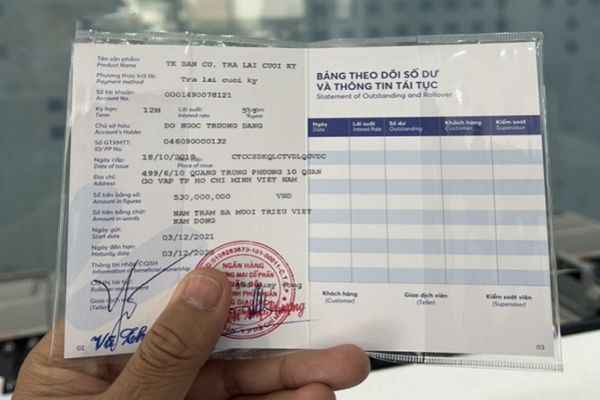 Tên sản phẩm:
Product Name
TK DAN CU, TRA LAI CUOI KY
Phương thức trả lãi:
Payment method
Tra lai cuoi ky
Số tài khoản:
Account No.
Kỳ hạn:
Term
12M
Lãi suất:
Interest rate
Chủ sở hữu:
Account's Holder
DO NGOC TRUONG DANG
Số GTXMTT:
ID/PP No.
046090000132
Ngày cấp:
Date of issue
Place of issue
Địa chỉ:
Address
499/6/10 QUANG TRUNG PHUONG 10 QUAN
GO VAP TP HO CHI MINH VIET NAM
Số tiền bằng số:
Amount in figures
530,000,000 VND
Số tiền bằng chữ:
Amount in words
NAM TRAM BA MUOI TRIEU VIET
NAM DONG
Ngày gửi:
Start date
03/12/2021
Ngày đến hạn:
Maturity date
03/12/
Thông tin về CSHHL
Information of beneficial ownership
NGÂN HÀNG
Giao dịch viên
(Teller)
01
BẢNG THEO DÕI SỐ DƯ
VÀ THÔNG TIN TÁI TỤC
Statement of Outstanding and Rollover
Ngày
Date
Lãi suất
Interest Rate
Số dư
Outstanding
Khách hàng
Customer
Kiểm soát
Supervisor
Khách hàng
(Customer)
Giao dịch viên
(Teller)
Kiểm soát viên
(Supervisor)
03